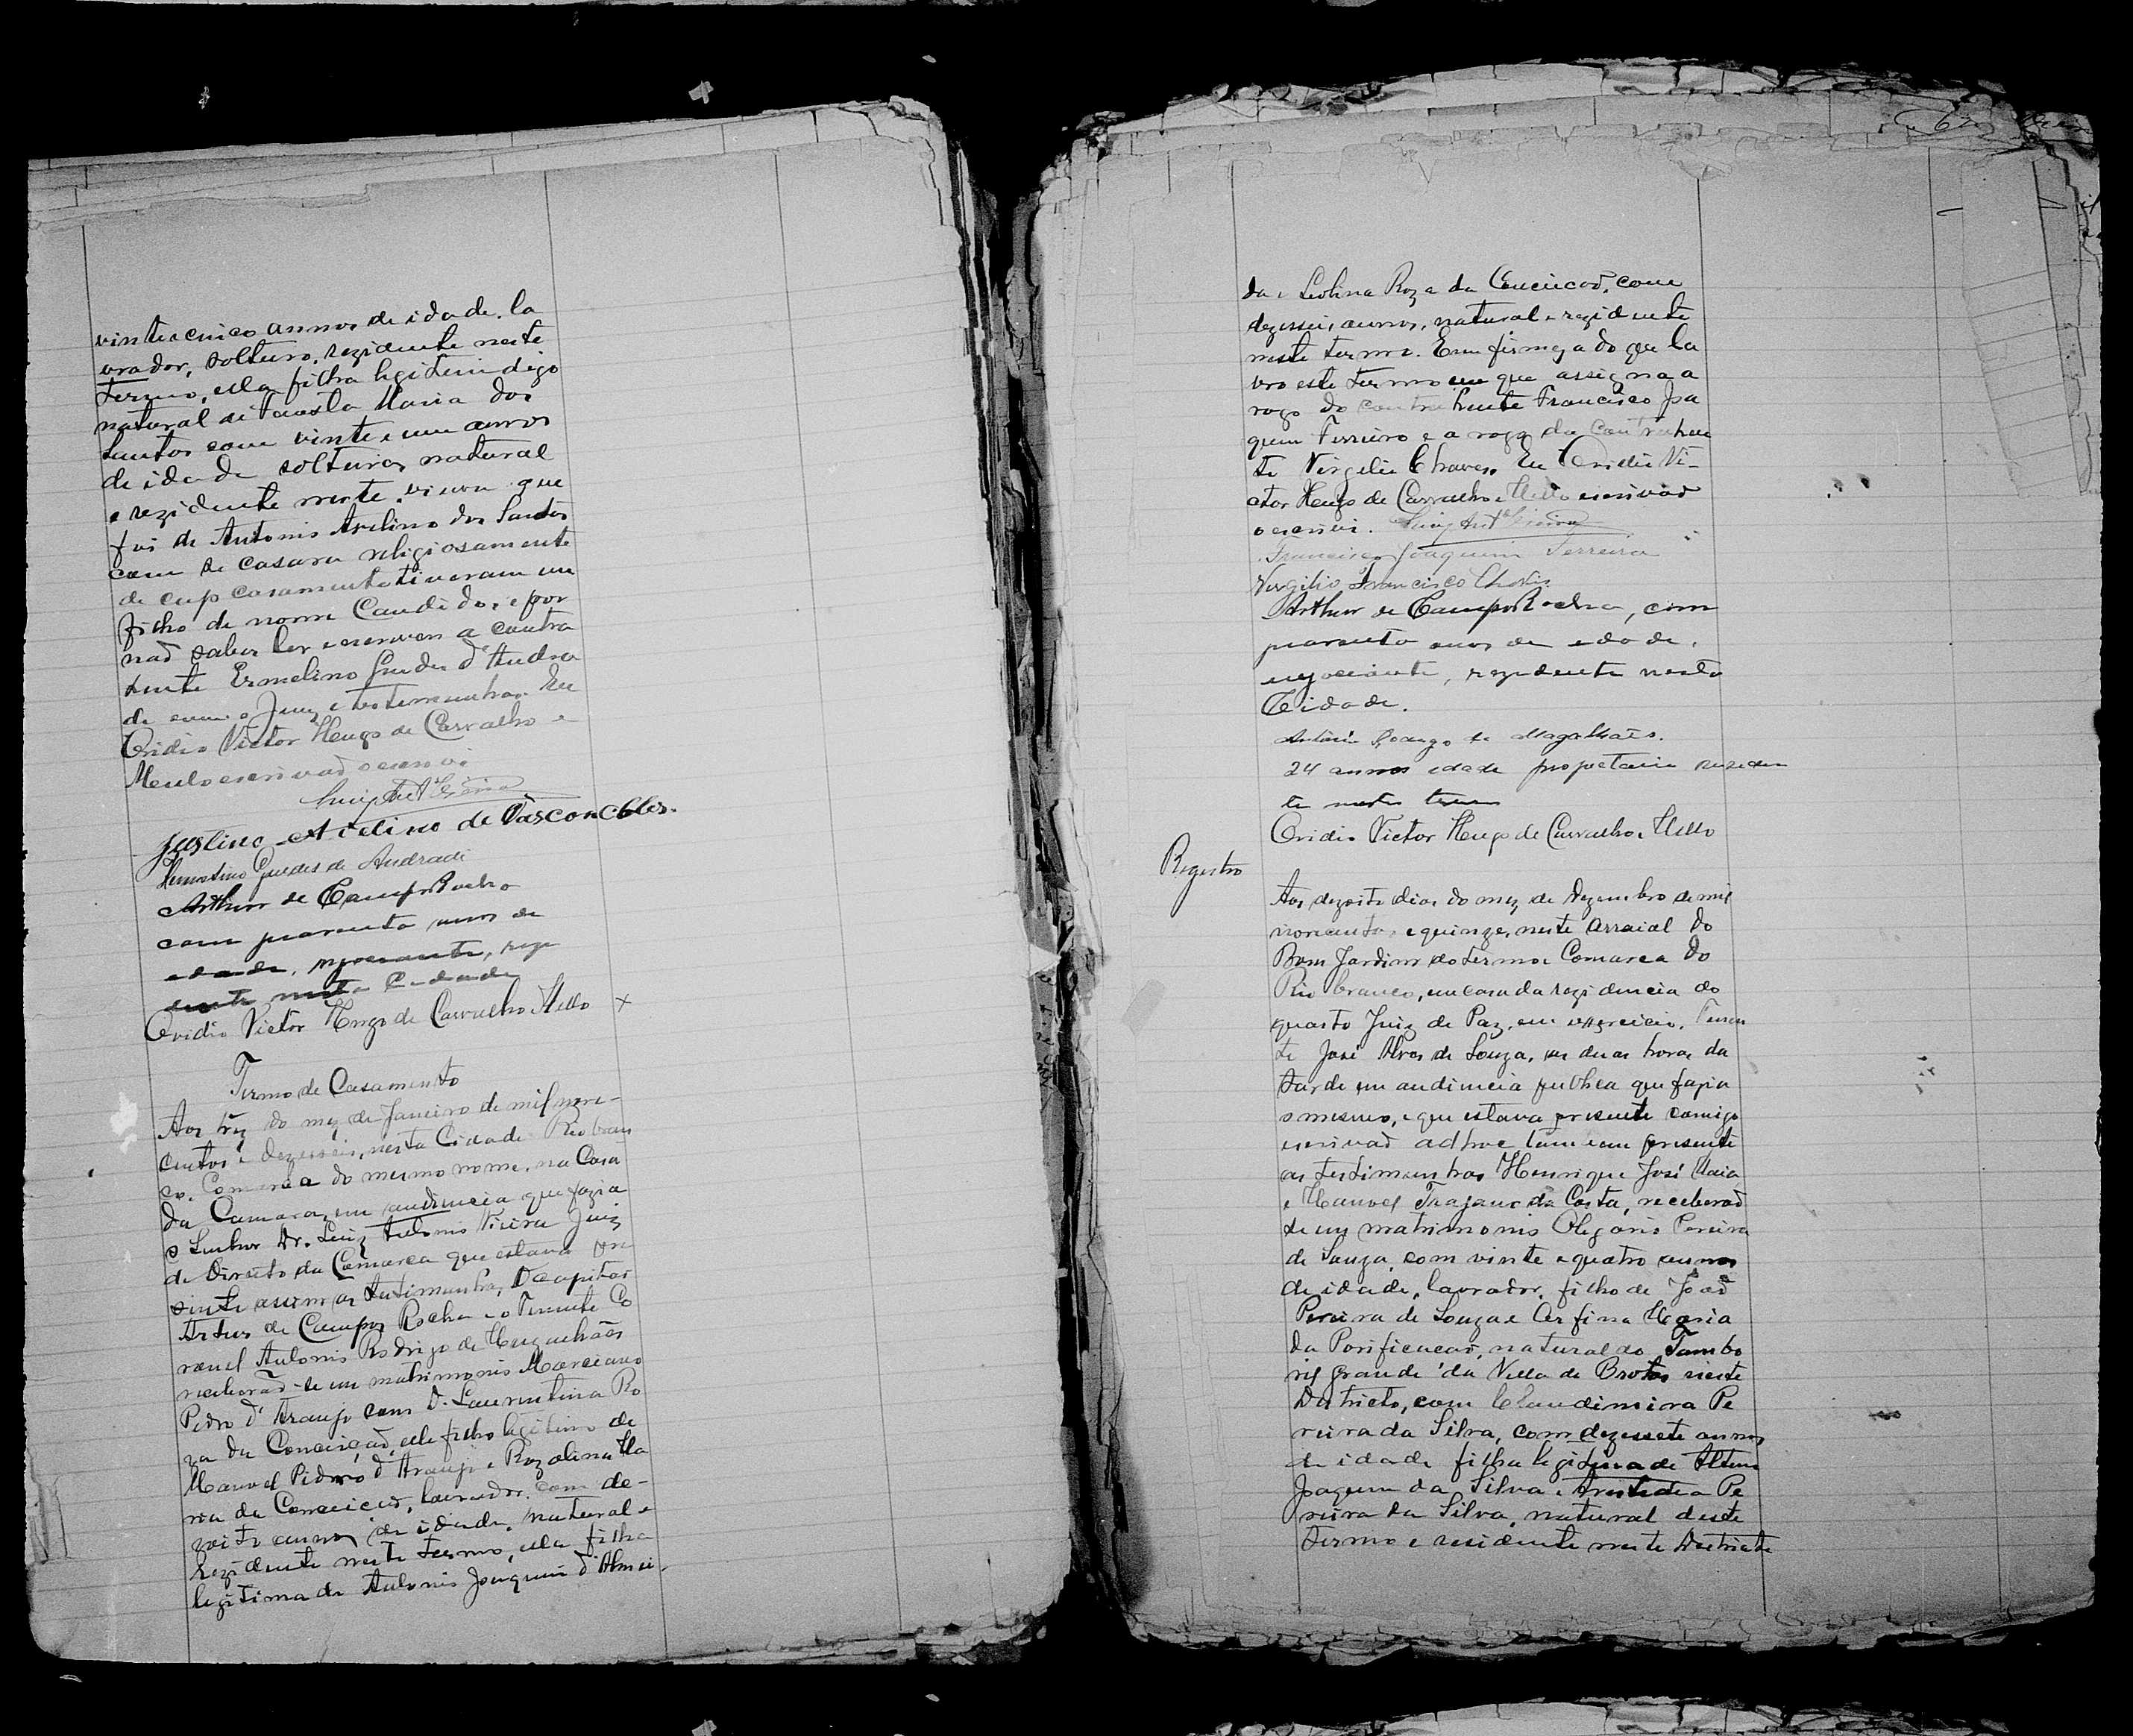 vinte e cinco annos de idade, la
vrador, solteiro, rezidente neste
Termo, ella filha legitim digo
natural de Fausta Maria dos
Santos com vinte e um annos
de idade solteira, natural
e rezidente neste, viuva que
foi de Antonio Avelino dos Santos
com se casara religiosamente
de cujo casamento tiveram um
filho de nome Candido, e por
não saber ler e escrever a contra
hente Ermelino Guedes d'Andra
de com o Juiz e testemunhas. Eu
Ovidio Victor Hugo de Carvalho e
Mello escrivão o escrevi
Luiz Antº Vieira
Justino Avelino de Vasconcellos.
Guedes de Andrade
Arthur de Campos Rocha
com quarenta annos de
edade, negociante, resi
dente nesta Cidade
Ovidio Victor Hugo de Carvalho Mello x
Termo de Casamento
Aos trez do mez de Janeiro de mil nove-
centos e dezesseis, nesta Cidade Rio bran
co, Comarca do mesmo nome, na Casa
da Camara, em audiencia que fazia
o Senhor Dr. Luiz Antonio Vieira Juiz
de Direito da Comarca que estava pre
sente assim as testimunhas, O capitão
Artur de Campos Rocha e o Tenente Co
ronel Antonio Rodrigo de Magalhães
receberão-se em matrimonio Marciano
Pedro d'Araujo com D. Laurentina Ro
za da Conceição, elle filho legitimo de
Manoel Pidro d'Araujo e Rozalina Ma
ria da Conceicão, lavrador, com de-
zoito annos de idade, natural e
Rezidente neste termo, ella filha
legitima de Antonio Joaquim d'Almei-
da e Leolina Roza da Conceicão, com
dezesseis annos, natural e rezidente
neste termo. E em firmeza do que la
vro este termo em que assigna a
rogo do contrahente Francisco Joa
quim Ferreiro e a rogo da Contrahen
te Virgilio Chaves. Eu Ovidio Vi-
ctor Hugo de Carvalho e Mello escrivão
o escrevi. Luiz Antº Vieira
Francisco Joaquim Ferreira
Virgilio Francisco Chaves
Arthur de Campos Rocha, com
quarenta anos de edade,
negociante, rezidente nesta
Cidade.
Antonio Rodrigo de Magalhães.
24 annos edade propetario residen
te nestes termo
Ovidio Victor Hugo de Carvalho e Mello
Registro
Aos dezoito dias do mez de Dezembro de mil
novecentos e quinze, neste arraial do
Bom Jardim do termo e Comarca do
Rio branco, em casa da rezidencia do
quarto Juiz de Paz, em exercicio, Tenen
te José Alves de Souza, as duas horas da
tarde em audiencia publica que fazia
o mesmo, e que estava presente comigo
escrivão adhoc tambem presente
as testimunhas Henrique José Maia
e Manoel Trajano da Costa, receberão
se em matrimonio Olegario Pereira
de Souza, com vinte e quatro annos
de idade, lavrador, filho de João
Pereira de Souza e Arfina Maria
da Porificacão, natural do Tambo
ril grande da Villa de Brotas neste
Districto, com Claudimira Pe
reira da Silva, com dezesete annos
de idade filha legitima de
Joaquim da Silva e Pe
reira da Silva, natural deste
termo e residente neste Districto